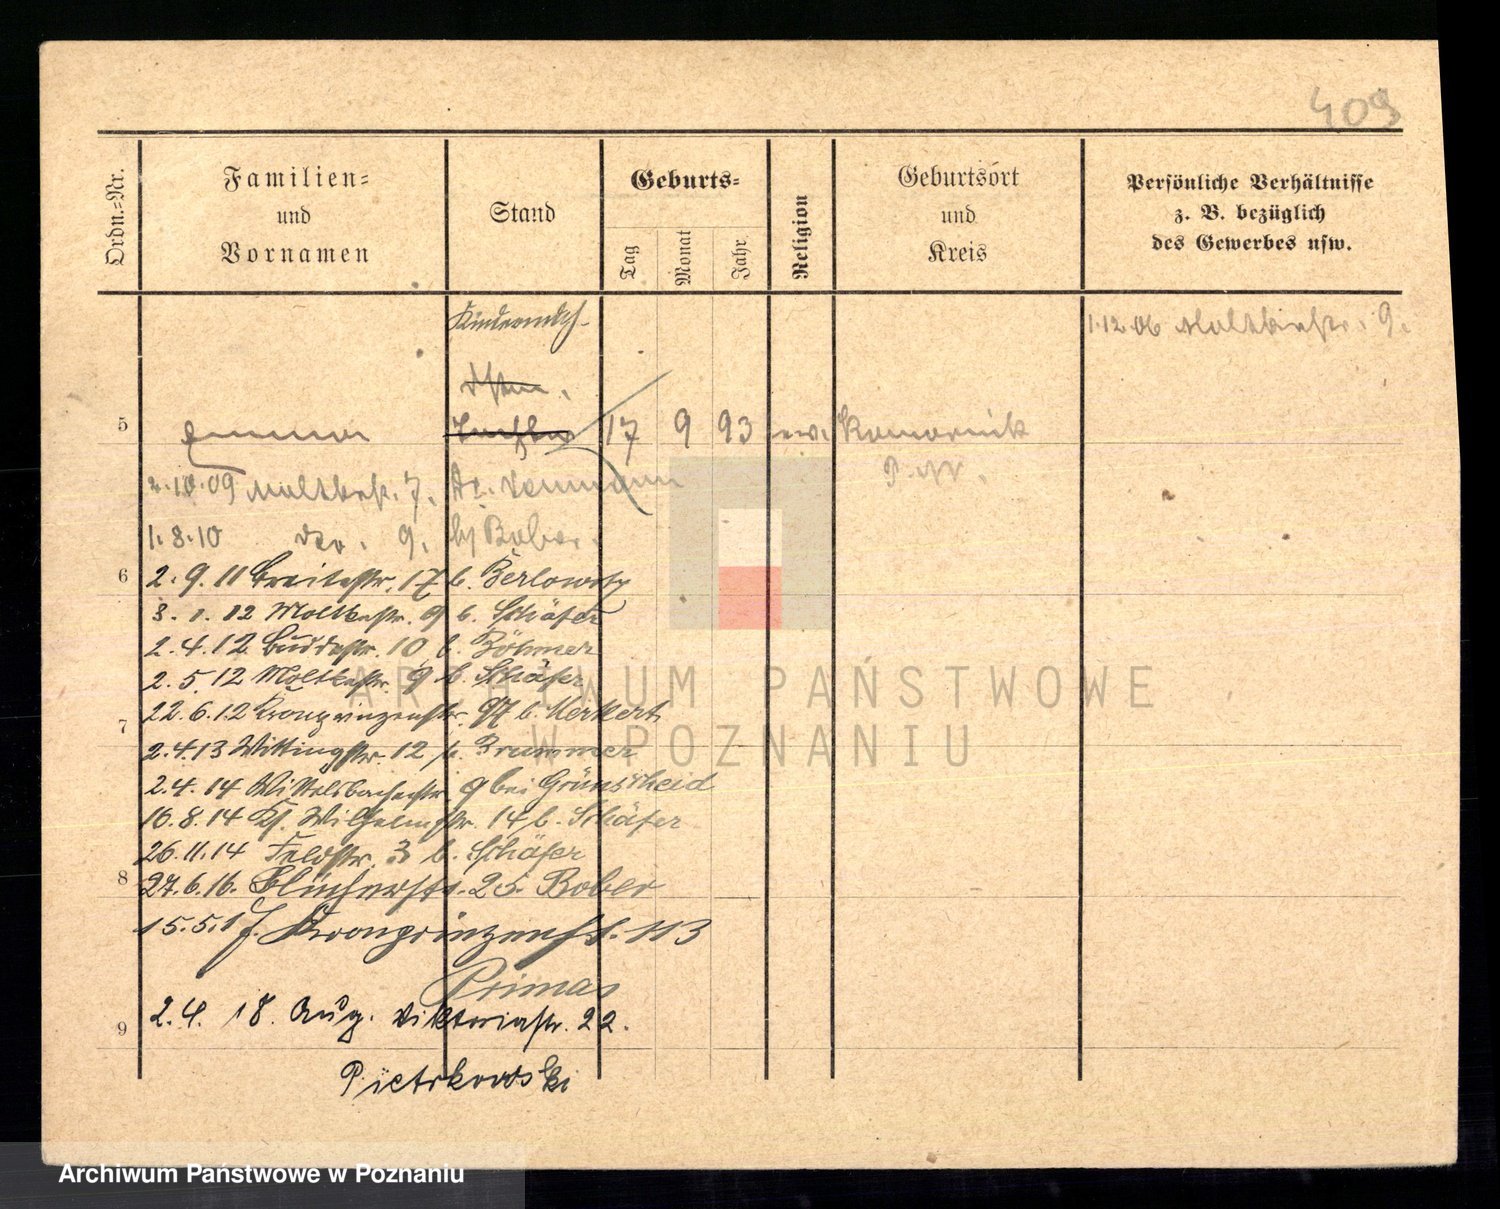 409
Ordn.=Nr.
Familien=
und
Vornamen
Stand
Geburts=
Tag
Monat
Jahr
Religion
Geburtsort
und
Kreis
Persönliche Verhältnisse
z. B. bezüglich
des Gewerbes usw.
1.12.06 Moltkestr. 9.
5 17 9 93 ev. Komornik
P. W.
2.10.09 Moltkestr. 7.
1.8.10 9. bei Bober.
6 2.9.11 Breitestr. 17 b. Berlowitz
3.1.12 Moltkestr. 9 b. Schäfer
2.4.12 Buddestr. 10 b. Böhmer
2.5.12 Moltkestr. 9 b. Schäfer
7 22.6.12 Kronprinzenstr. 97 b. Merkert
2.4.13 Wittingstr. 12 b. Brummer
2.4.14 Wittelsbacherstr. 9 bei Grünscheid
16.8.14 Kg. Wilhelmstr. 14 b. Schäfer
26.11.14 Feldstr. 3 b. Schäfer
8 27.6.16. Blücherstr. 25. Bober
15.5.17. Kronprinzenstr. 113
Primas
9 2.4.18. Aug. Viktoriastr. 22.
Pietrkowski
ARCHIWUM PAŃSTWOWE
W POZNANIU
Archiwum Państwowe w Poznaniu